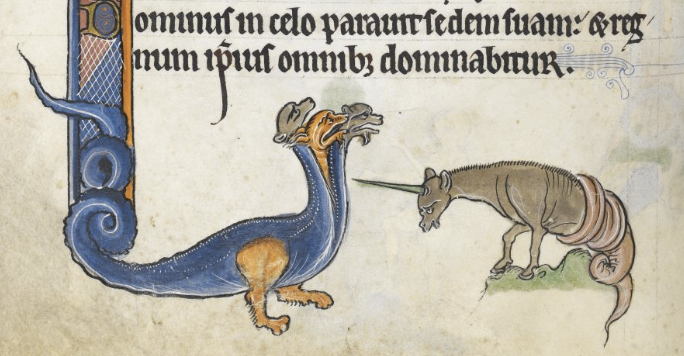 ominus in celo parauit sedem suam: & reg
num ip̄ius omnibꝫ dominabitur.